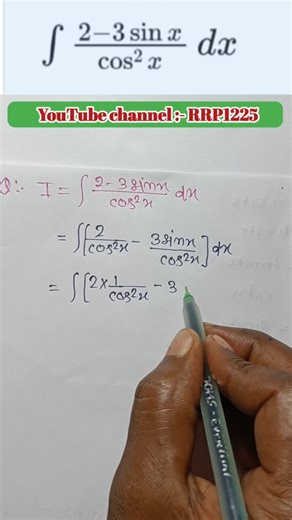 ∫ (2−3 sin x)/(cos² x) dx
YouTube channel :- RRP1225
Q:- I = ∫ (2-3sinx)/(cos²x) dx
= ∫[2/(cos²x) - (3sinx)/(cos²x)] dx
= ∫[2×1/(cos²x) - 3